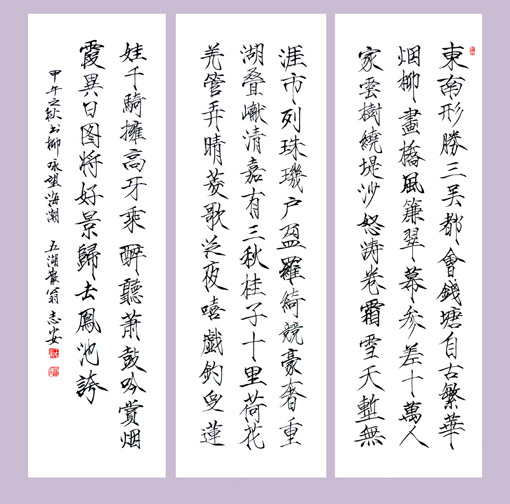 東南形勝三吴都會錢塘自古繁華
烟柳畫橋風簾翠幕参差十萬人
家雲樹繞堤沙怒涛卷霜雪天塹無
涯市列珠璣户盈羅綺競豪奢重
湖叠巘清嘉有三秋桂子十里荷花
羌管弄晴菱歌泛夜嘻戲钓叟蓮
娃千騎擁高牙乘醉聽萧鼓吟賞烟
霞異日图将好景歸去鳳池誇
甲午之秋书柳望海潮 五湖翁志安